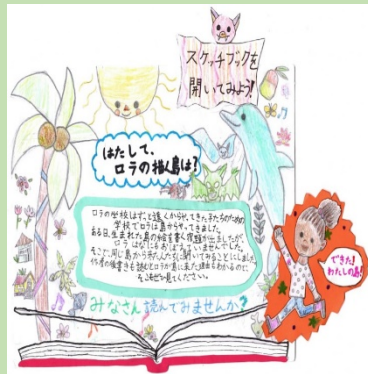 スケッチブックを
開いてみよう!
はたして、
ロラの描く島は?
ロラの学校はずっと遠くからやってきた子たちのための
学校でロラは島からやってきました。
ある日、生まれた島の絵を書く宿題が出ましたが
ロラはなにもおぼえていませんでした。
そこで、同じ島から来た人たちに聞いてみることにしました
作者の後書きを読むとロラが島に
わかるので、
ぜひ見てください。
できた!
わたしの島!
みなさん読んでみませんか?